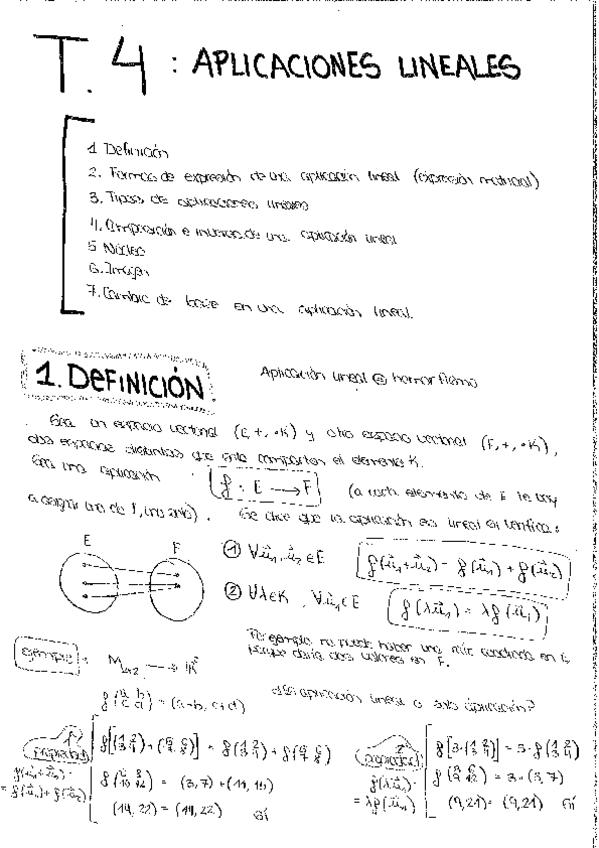 T. 4 : APLICACIONES LINEALES
1. Definición
2. Formas de expresión de una aplicación lineal (expresión matricial)
3. Tipos de aplicaciones lineales
4. Composición e inversa de una aplicación lineal
5. Núcleo
6. Imagen
7. Cambio de base en una aplicación lineal.
1. DEFINICIÓN.
Aplicación lineal homorfismo
Sea un espacio vectorial (E, +, ·K) y otro espacio vectorial (F, +, ·K),
dos espacios distintos que solo comparten el elemento K.
Sea una aplicación f : E → F (a cada elemento de E le voy
a asignar uno de F, uno solo). Se dice que la aplicación es lineal si verifica:
E F
① ∀u⃗₁, u⃗₂ ∈ E f(u⃗₁+u⃗₂) = f(u⃗₁) + f(u⃗₂)
② ∀λ∈K, ∀u⃗₁∈E f(λu⃗₁) = λf(u⃗₁)
Por ejemplo no puede haber una en E
porque daría dos valores en F.
ejemplo: M₂ₓ₂ → ℝ²
f(a b / c d) = (a+b, c+d) aplicación lineal o solo aplicación?
1ª propiedad
f(u⃗₁+u⃗₂) = f(u⃗₁) + f(u⃗₂)
(14, 22) = (14, 22) sí
2ª propiedad
f(λu⃗₁) = λf(u⃗₁)
= 3·(3, 7)
(9, 21) = (9, 21) sí